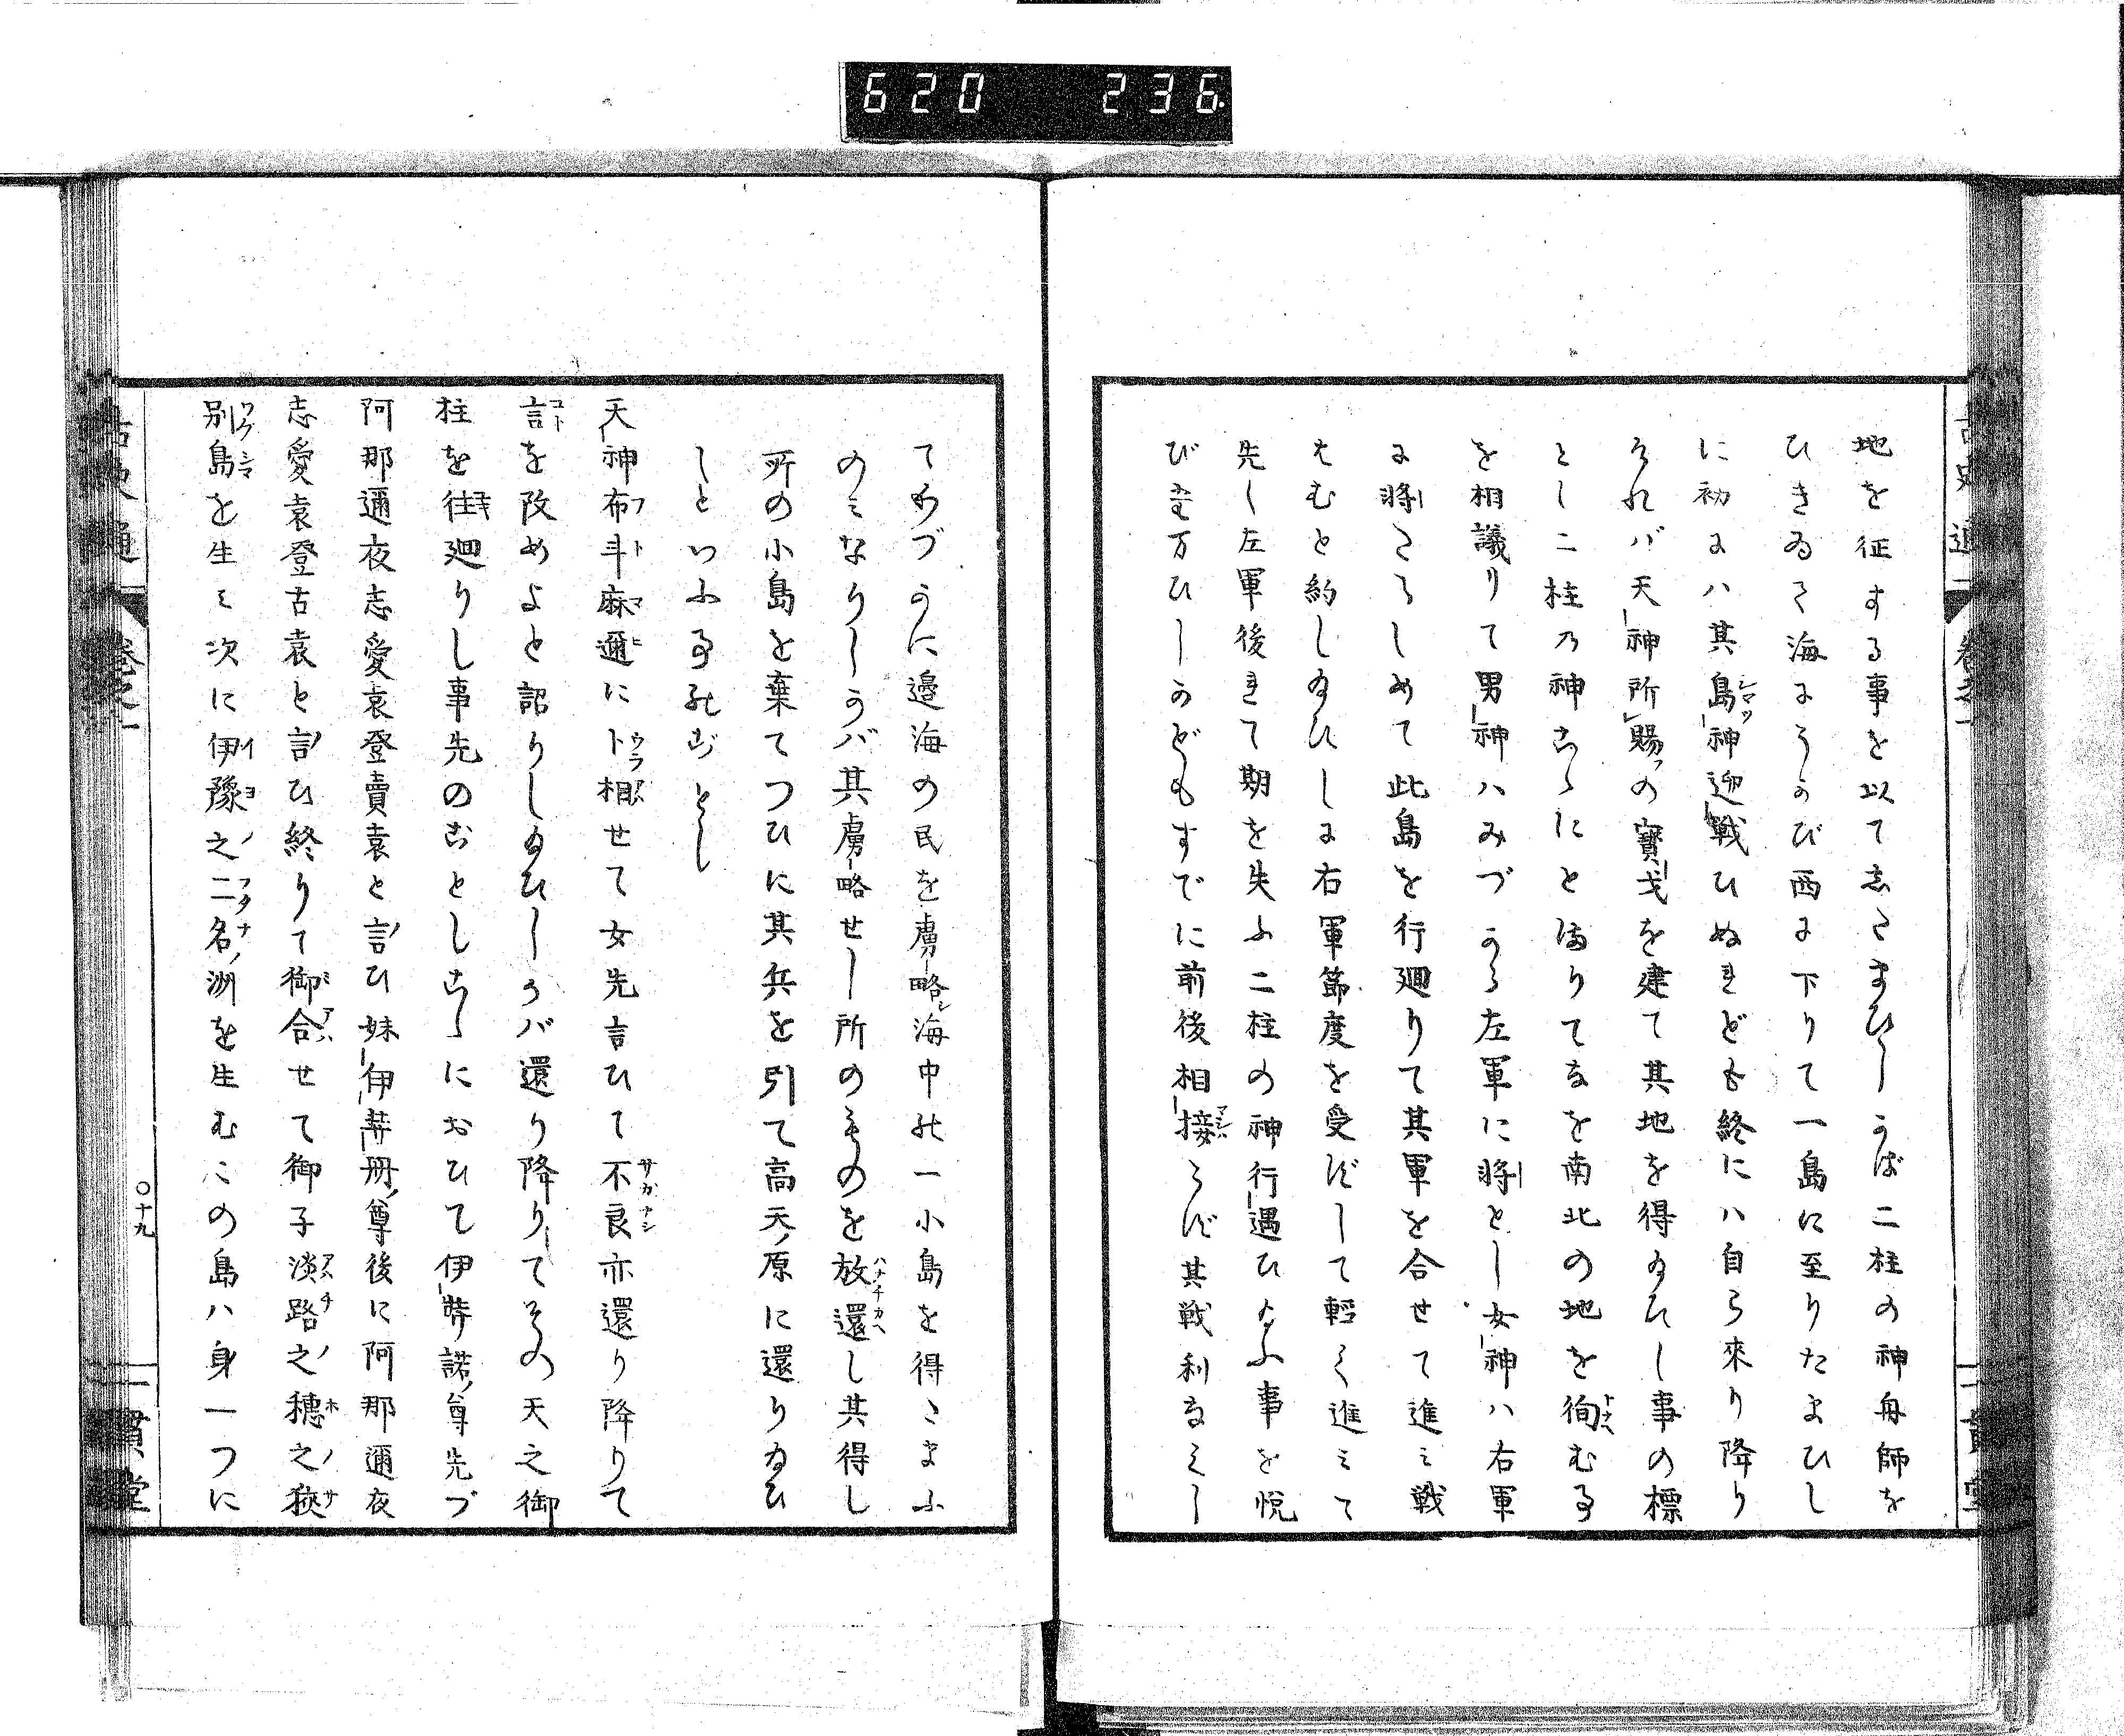 620 236
古史通 卷之一 一貫堂
地を征する事を以てゑたまひしかば二柱の神舟師を
ひきゐて海にうかび西に下りて一島に至りたまひし
に初にハ其島神迎戦ひぬれども終にハ自ら來り降り
それバ天神所賜の寶戈を建て其地を得給ひし事の標
とし二柱乃神こゝにとゞまりてなを南北の地を徇むる
を相議りて男神ハみづから左軍に將とし女神ハ右軍
に將たらしめて此島を行廻りて其軍を合せて進ミ戦
はむと約し給ひしに右軍節度を受ずして輕く進ミて
先し左軍後れて期を失ふ二柱の神行遇ひ給ふ事を悦
び玄万ひしかどもすでに前後相接らず其戦利なくし
てわづかに邊海の民を虜略し海中の一小島を得たまふ
のミなりしかバ其虜略せし所のものを放還し其得し
所の小島を棄てつひに其兵を引て高天原に還り給ひ
しといふ事のごとし
天神布斗麻邇に卜相せて女先言ひて不良亦還り降りて
言を改めよと詔りし給ひしかバ還り降りてその天之御
柱を往廻りし事先のごとしこゝにおひて伊弉諾尊先づ
阿那邇夜志愛袁登賣袁と言ひ妹伊弉冊尊後に阿那邇夜
志愛袁登古袁と言ひ終りて御合せて御子淡路之穗之狹
別島を生ミ次に伊豫之二名洲を生むこの島ハ身一つに
古史通 卷之一 〇十九 一貫堂